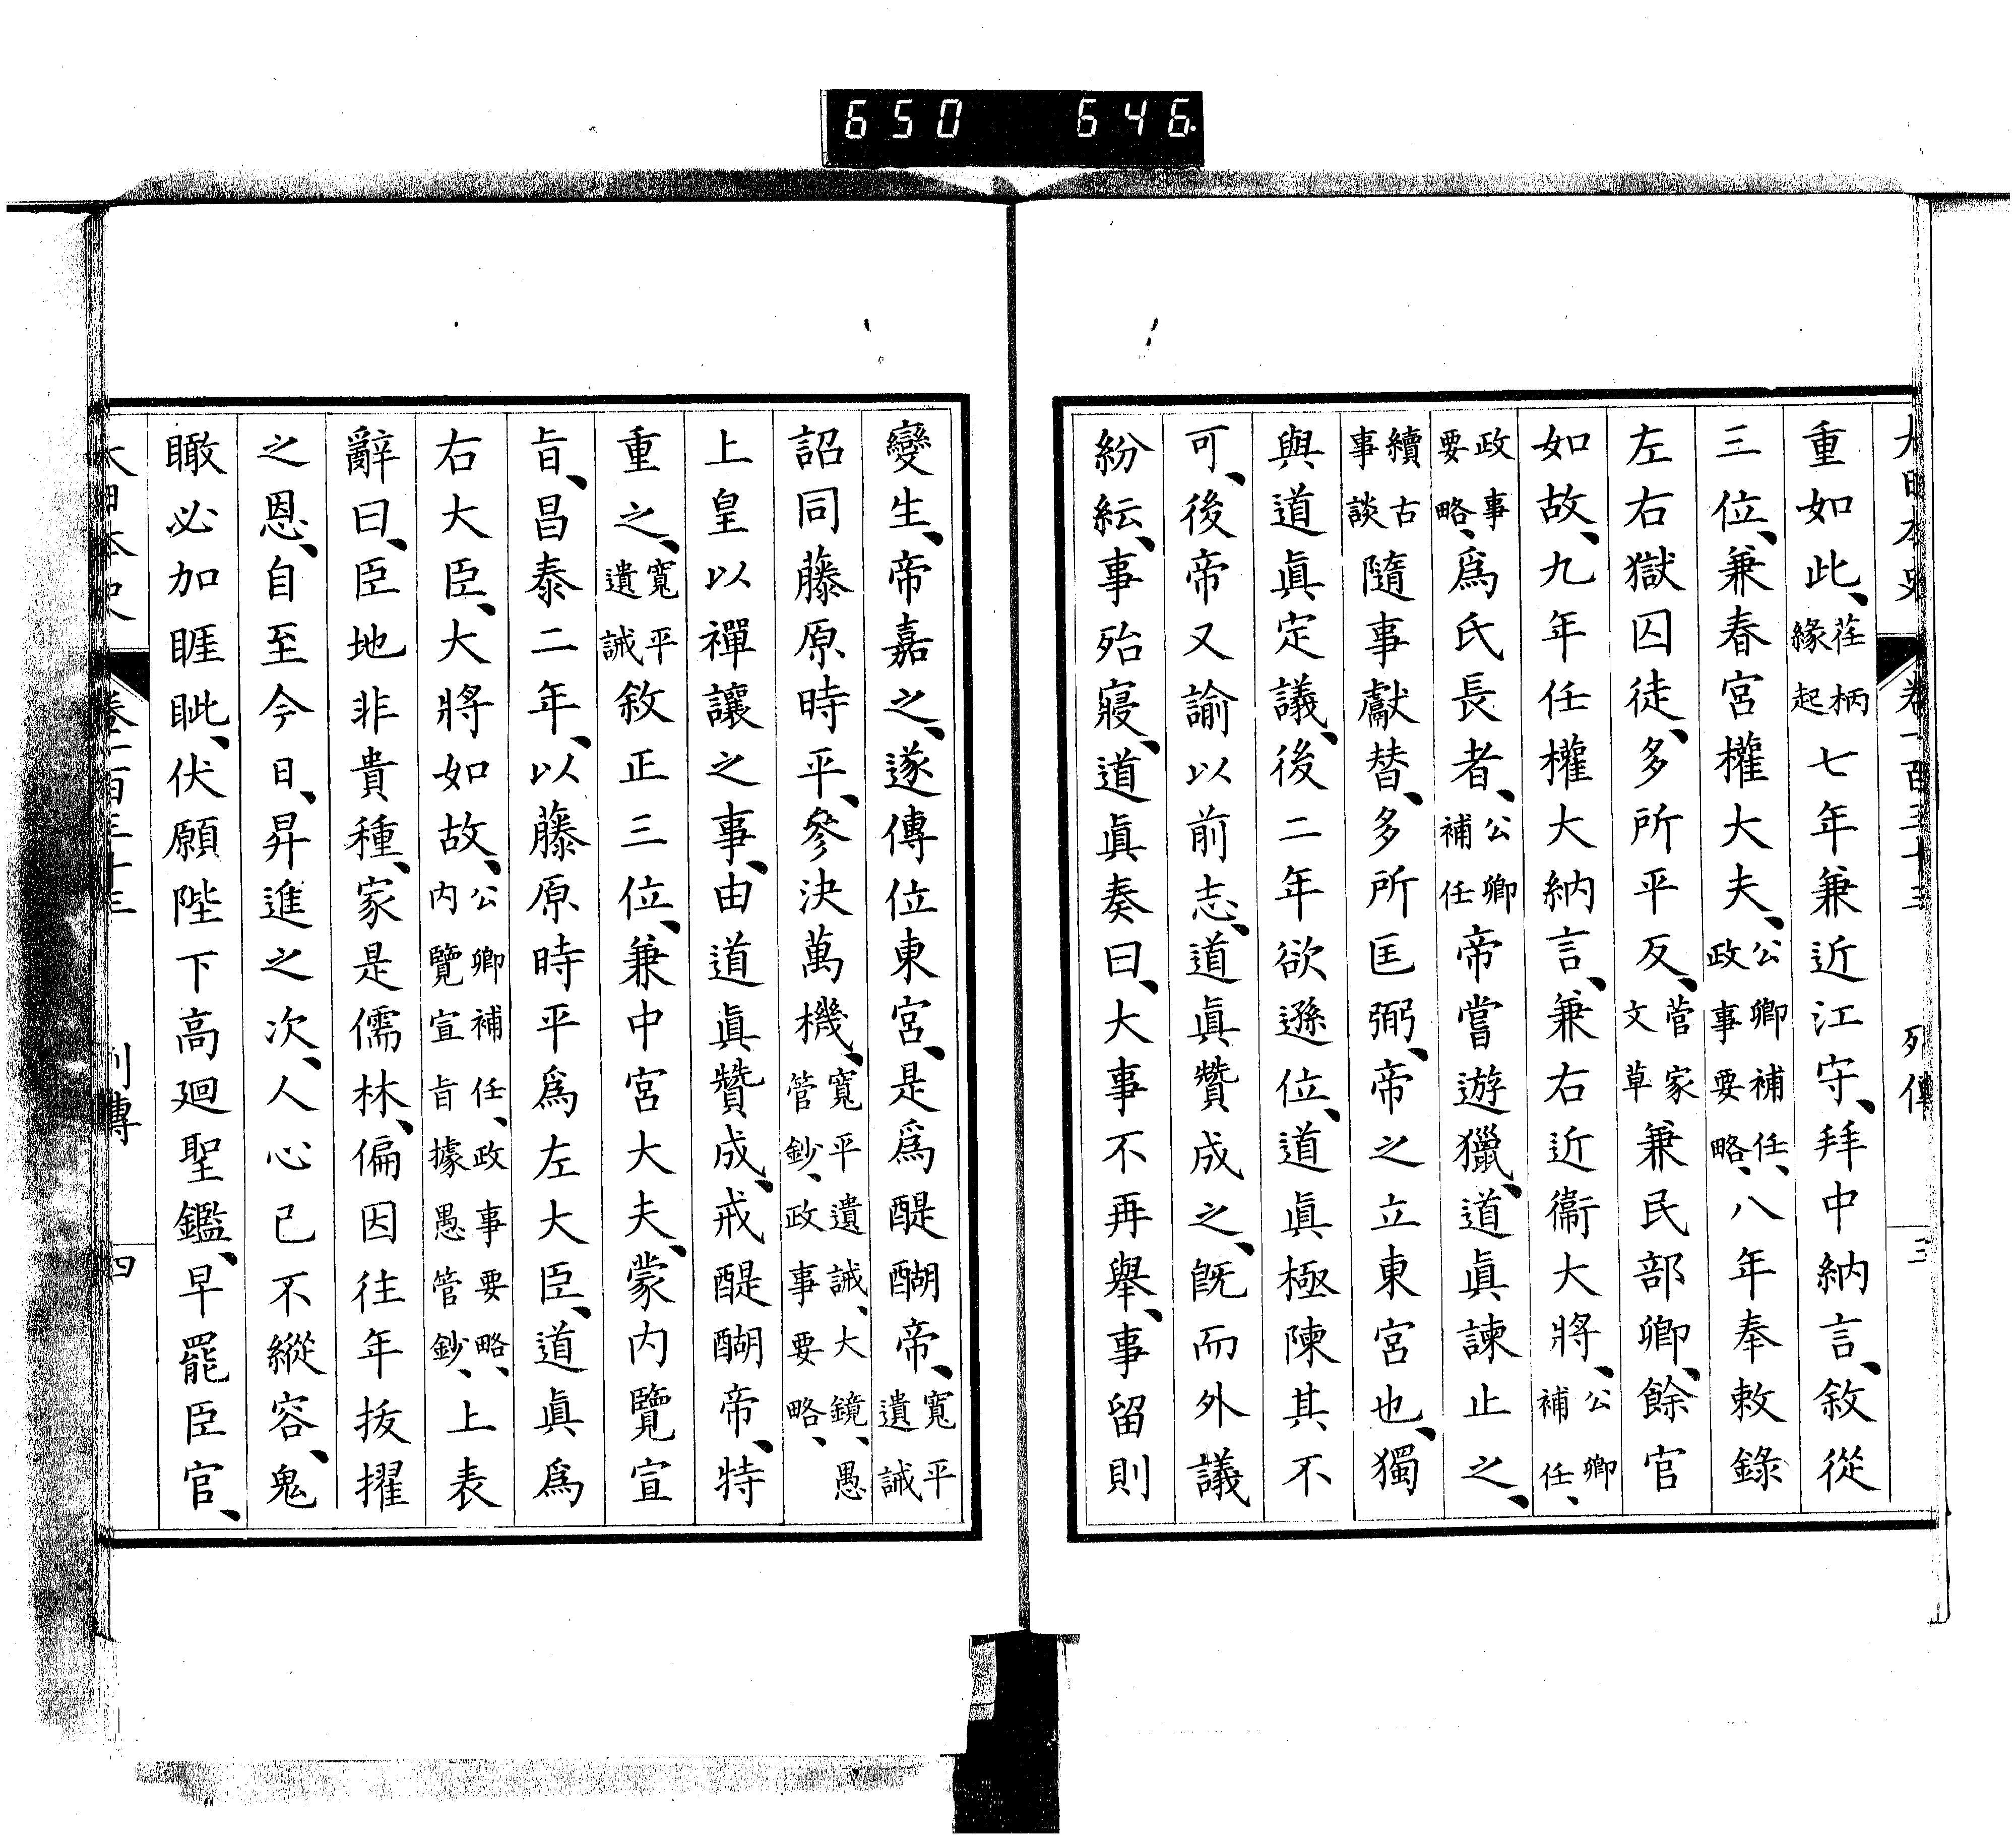 650 646
大日本史 卷一百三十三 列傳 三
重如此、荏柄緣起七年兼近江守、拜中納言、敘從
三位、兼春宮權大夫、公卿補任、政事要略、八年奉敕錄
左右獄囚徒、多所平反、菅家文草兼民部卿、餘官
如故、九年任權大納言、兼右近衞大將、公卿補任、
政事要略、爲氏長者、公卿補任帝嘗遊獵、道眞諫止之、
續古事談隨事獻替、多所匡弼、帝之立東宮也、獨
與道眞定議、後二年欲遜位、道眞極陳其不
可、後帝又諭以前志、道眞贊成之、旣而外議
紛紜、事殆寢、道眞奏曰、大事不再舉、事留則
變生、帝嘉之、遂傳位東宮、是爲醍醐帝、寬平遺誡
詔同藤原時平、參決萬機、寬平遺誡、大鏡、愚管鈔、政事要略、
上皇以禪讓之事、由道眞贊成、戒醍醐帝、特
重之、寬平遺誡敘正三位、兼中宮大夫、蒙内覽宣
旨、昌泰二年、以藤原時平爲左大臣、道眞爲
右大臣、大將如故、公卿補任、政事要略、内覽宣旨據愚管鈔、上表
辭曰、臣地非貴種、家是儒林、偏因往年拔擢
之恩、自至今日、昇進之次、人心已不縱容、鬼
瞰必加睚眦、伏願陛下高廻聖鑑、早罷臣官、
大日本史 卷一百三十三 列傳 四